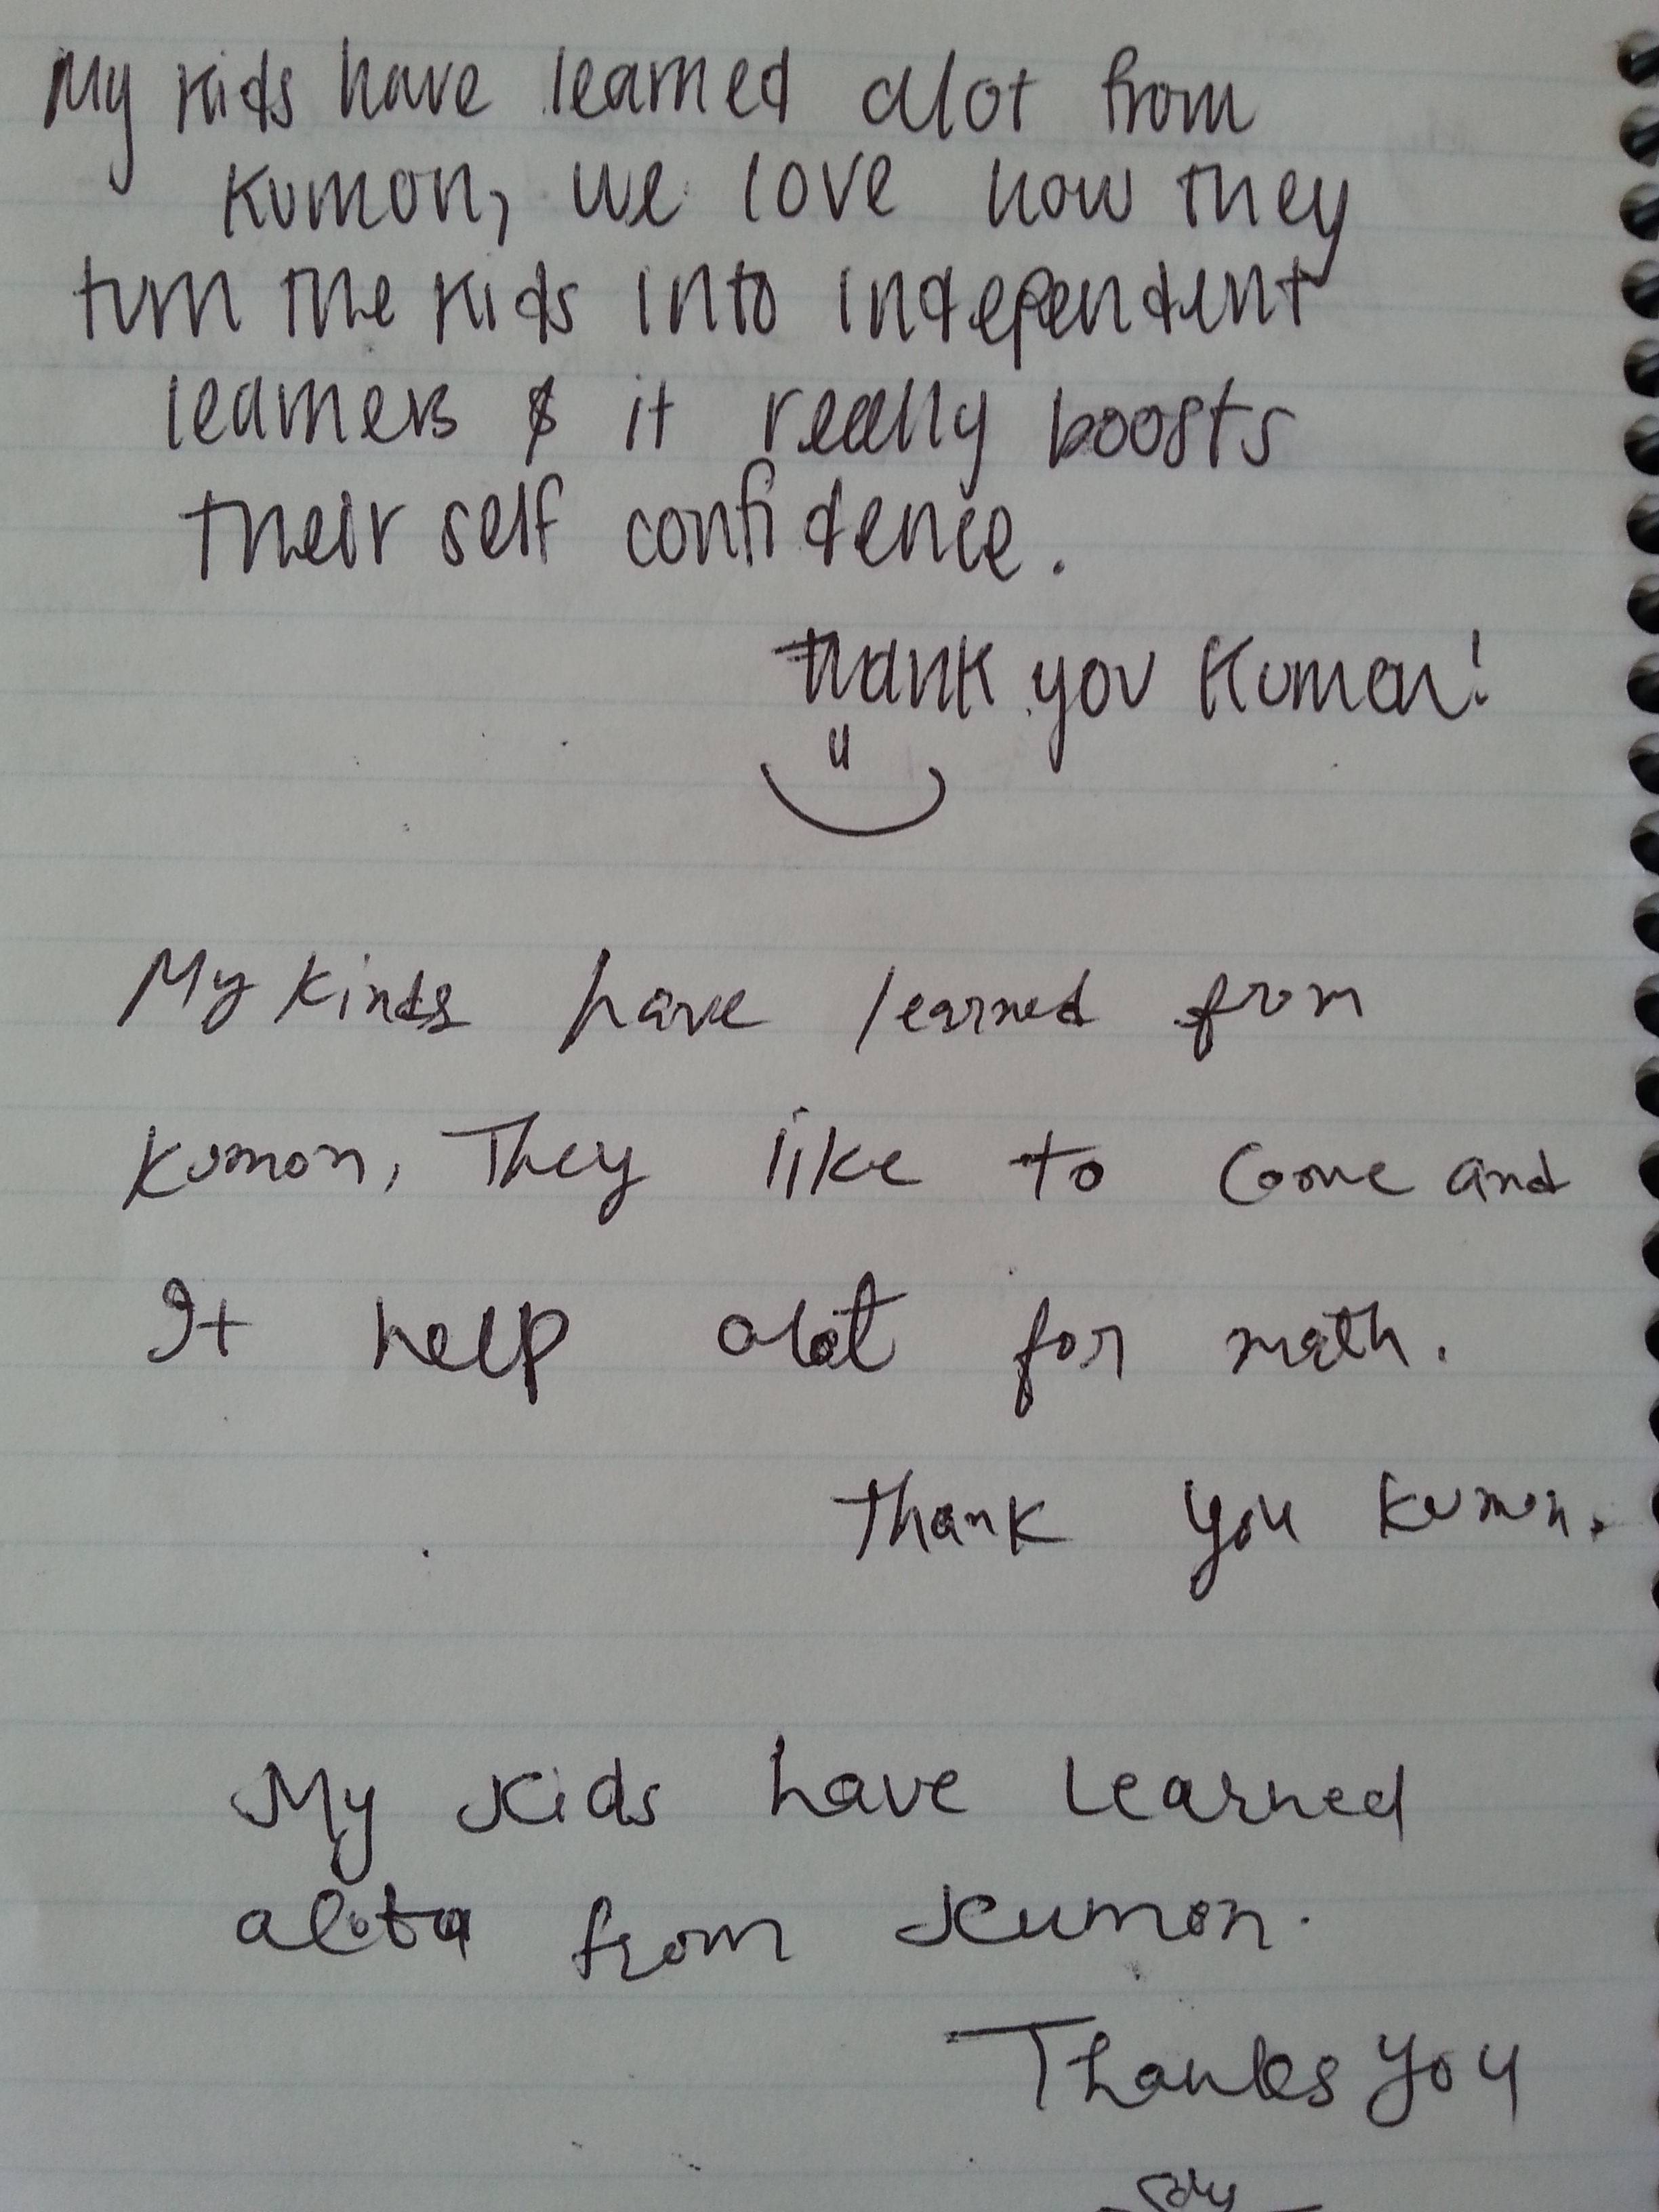 My kids have learned alot from
Kumon, we love how they
turn the kids into independent
learners & it really boosts
their self confidence.
Thank you Kumon!
My kinds have learned from
Kumon, They like to come and
It help alot for math.
Thank you Kumon.
My Kids have Learned
alota from Kumon.
Thanks you